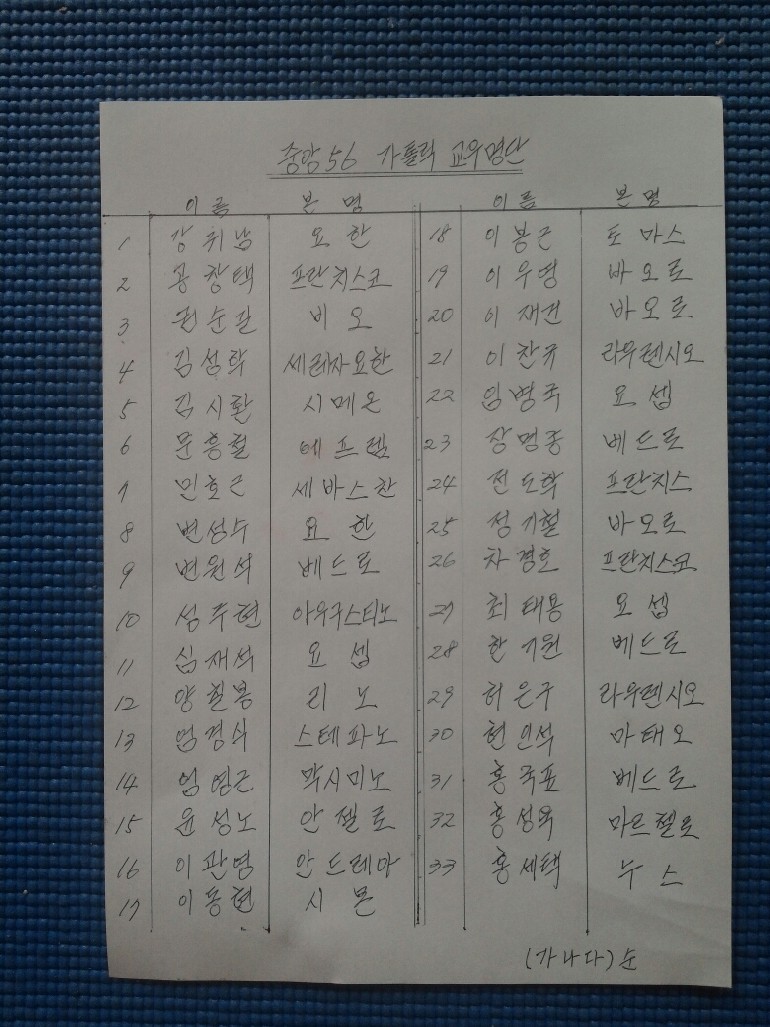 중앙56 가톨릭 교우명단
이름 본명 이름 본명
1 강취남 요한 18 이봉근 토마스
2 공창택 프란치스코 19 이우영 바오로
3 권순길 비오 20 이재건 바오로
4 김성학 세레자요한 21 이찬규 라우렌시오
5 김시환 시메온 22 임병국 요셉
6 문흥철 에프렘 23 장명종 베드로
7 민호근 세바스찬 24 전도학 프란치스
8 변성수 요한 25 정기철 바오로
9 변원석 베드로 26 차경호 프란치스코
10 성주현 아우구스티노 27 최태용 요셉
11 심재석 요셉 28 한기원 베드로
12 양철봉 리노 29 허은구 라우렌시오
13 엄경식 스테파노 30 현인석 마태오
14 엄영근 막시미노 31 홍국표 베드로
15 윤성노 안젤로 32 홍성욱 마르첼로
16 이관영 안드레아 33 홍세택
17 이동현 시몬
(가나다)순